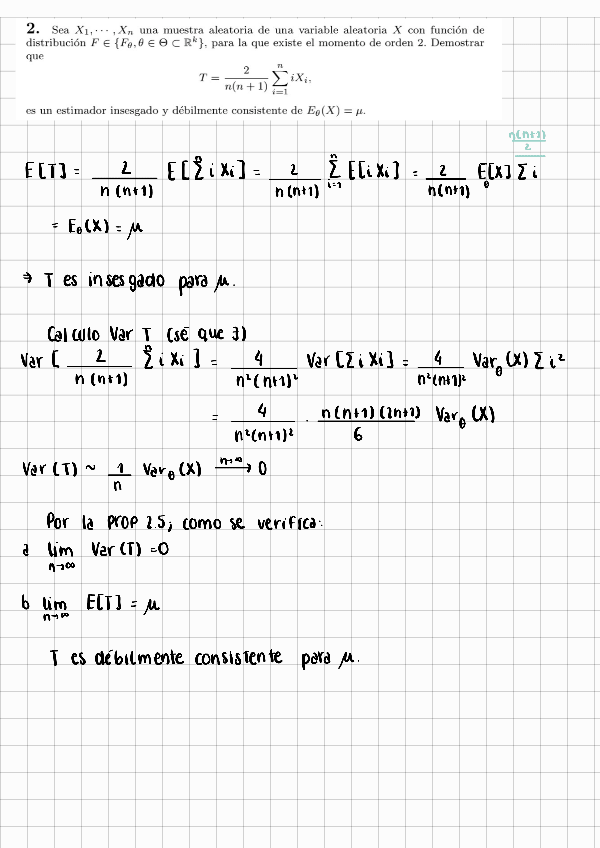 2. Sea X₁, · · · , Xₙ una muestra aleatoria de una variable aleatoria X con función de
distribución F ∈ {F_θ, θ ∈ Θ ⊂ ℝᵏ}, para la que existe el momento de orden 2. Demostrar
que
T = 2/(n(n + 1)) ∑_{i=1}^{n} iXᵢ,
es un estimador insesgado y débilmente consistente de E_θ(X) = μ.
n(n+1)/2
E[T] = 2/(n(n+1)) E[∑^n i Xi] = 2/(n(n+1)) ∑_{i=1}^{n} E[i Xi] = 2/(n(n+1)) E_θ[X] ∑ i
= E_θ(X) = μ
⇒ T es insesgado para μ.
Calculo Var T (sé que ∃)
Var [ 2/(n(n+1)) ∑^n i Xi ] = 4/(n²(n+1)²) Var[∑ i Xi] = 4/(n²(n+1)²) Var_θ(X) ∑ i²
= 4/(n²(n+1)²) · n(n+1)(2n+1)/6 Var_θ(X)
Var(T) ~ 1/n Var_θ(X) —n→∞→ 0
Por la prop 2.5, como se verifica:
a lim_{n→∞} Var(T) = 0
b lim_{n→∞} E[T] = μ
T es débilmente consistente para μ.